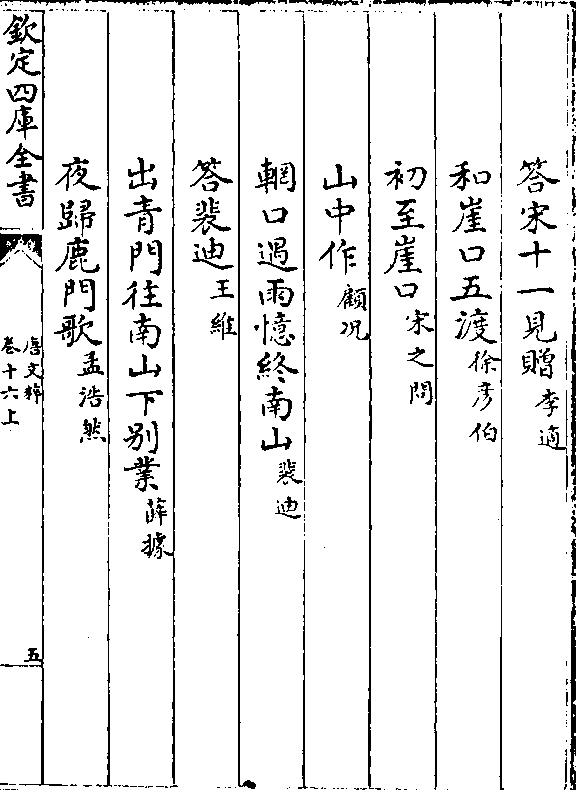 答宋十一見贈 李適
和崖口五渡 徐彦伯
初至崖口 宋之問
山中作 顧况
輞口遇雨憶終南山 裴迪
答裴迪 王維
出青門往南山下别業 薛據
夜歸鹿門歌 孟浩然
欽定四庫全書
唐文粹
卷十六上
五